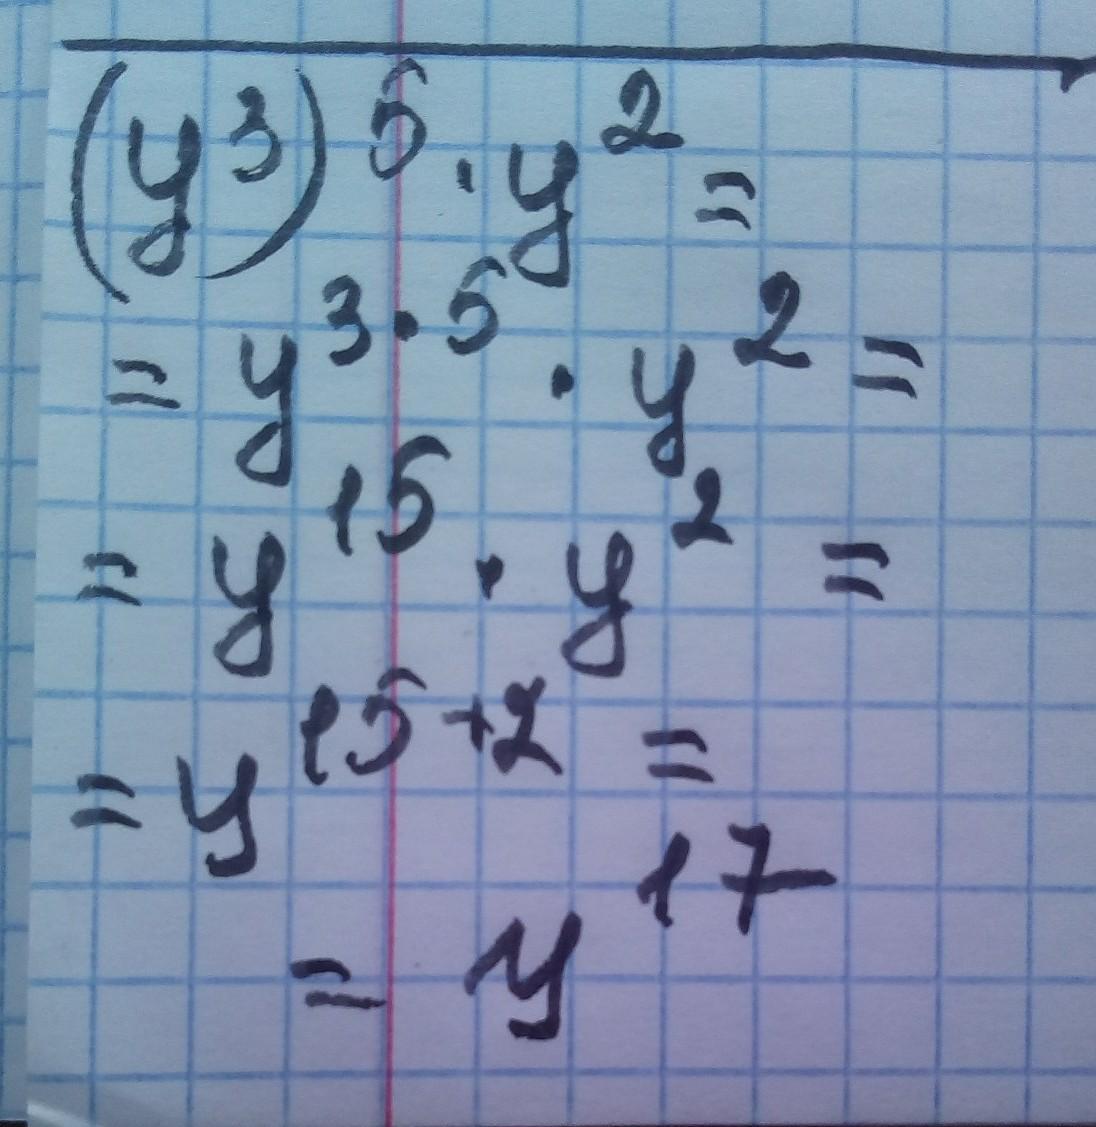 (y³)⁵ · y² =
= y³·⁵ · y² =
= y¹⁵ · y² =
= y¹⁵⁺² =
= y¹⁷